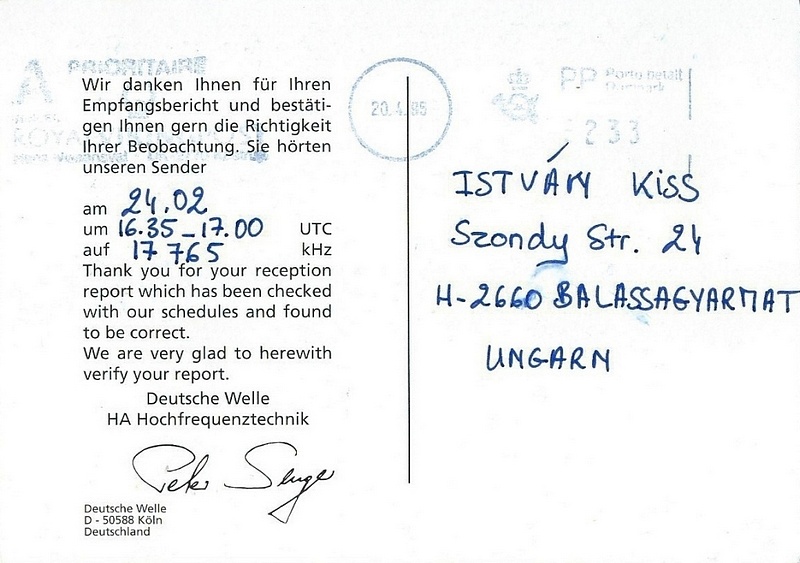 A PRIORITAIRE
Wir danken Ihnen für Ihren
Empfangsbericht und bestäti-
gen Ihnen gern die Richtigkeit
Ihrer Beobachtung. Sie hörten
unseren Sender
am 24.02
um 16.35_17.00 UTC
auf 17 765 kHz
Thank you for your reception
report which has been checked
with our schedules and found
to be correct.
We are very glad to herewith
verify your report.
Deutsche Welle
HA Hochfrequenztechnik
Peter Senger
Deutsche Welle
D - 50588 Köln
Deutschland
20.4.95
PP Porto betalt
Danmark
233
ISTVÁN KISS
Szondy Str. 24
H-2660 BALASSAGYARMAT
UNGARN